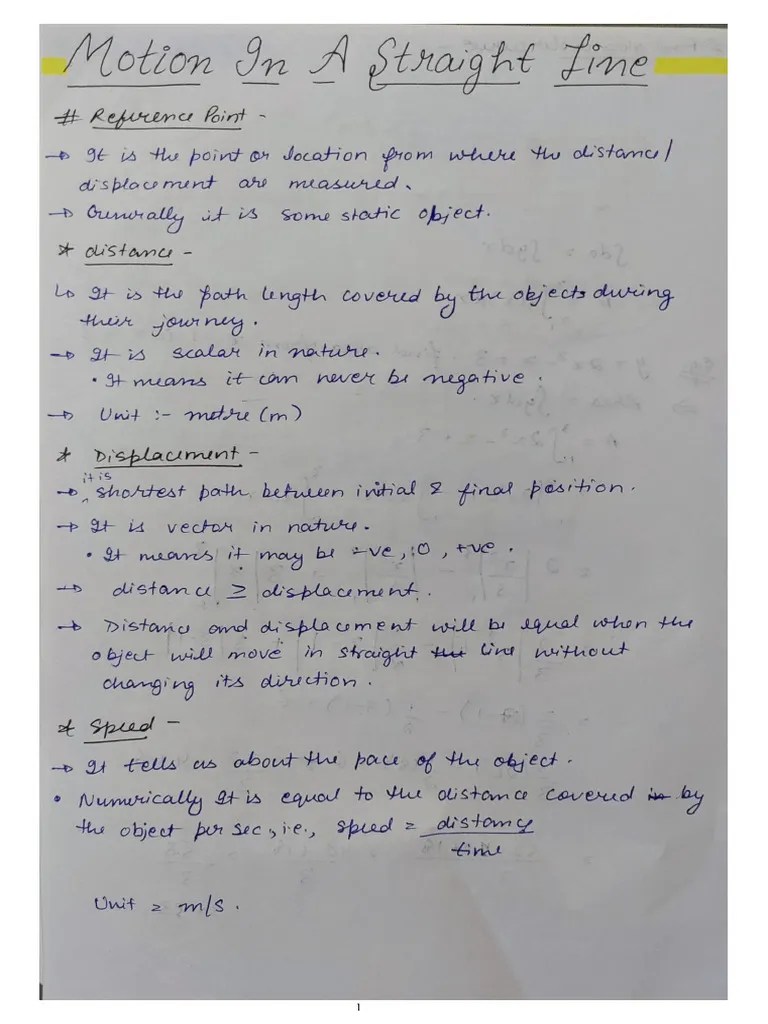 Motion In A Straight Line
# Reference Point -
→ It is the point or location from where the distance/
displacement are measured.
→ Generally it is some static object.
* distance -
↳ It is the path length covered by the objects during
their journey.
→ It is scalar in nature.
• It means it can never be negative.
→ Unit :- metre (m)
* Displacement -
it is
→ ^ shortest path between initial & final position.
→ It is vector in nature.
• It means it may be -ve, 0, +ve.
→ distance ≥ displacement.
→ Distance and displacement will be equal when the
object will move in straight line without
changing its direction.
* Speed -
→ It tells us about the pace of the object.
• Numerically It is equal to the distance covered by
the object per sec., i.e., speed = distance
time
Unit = m/s.
1